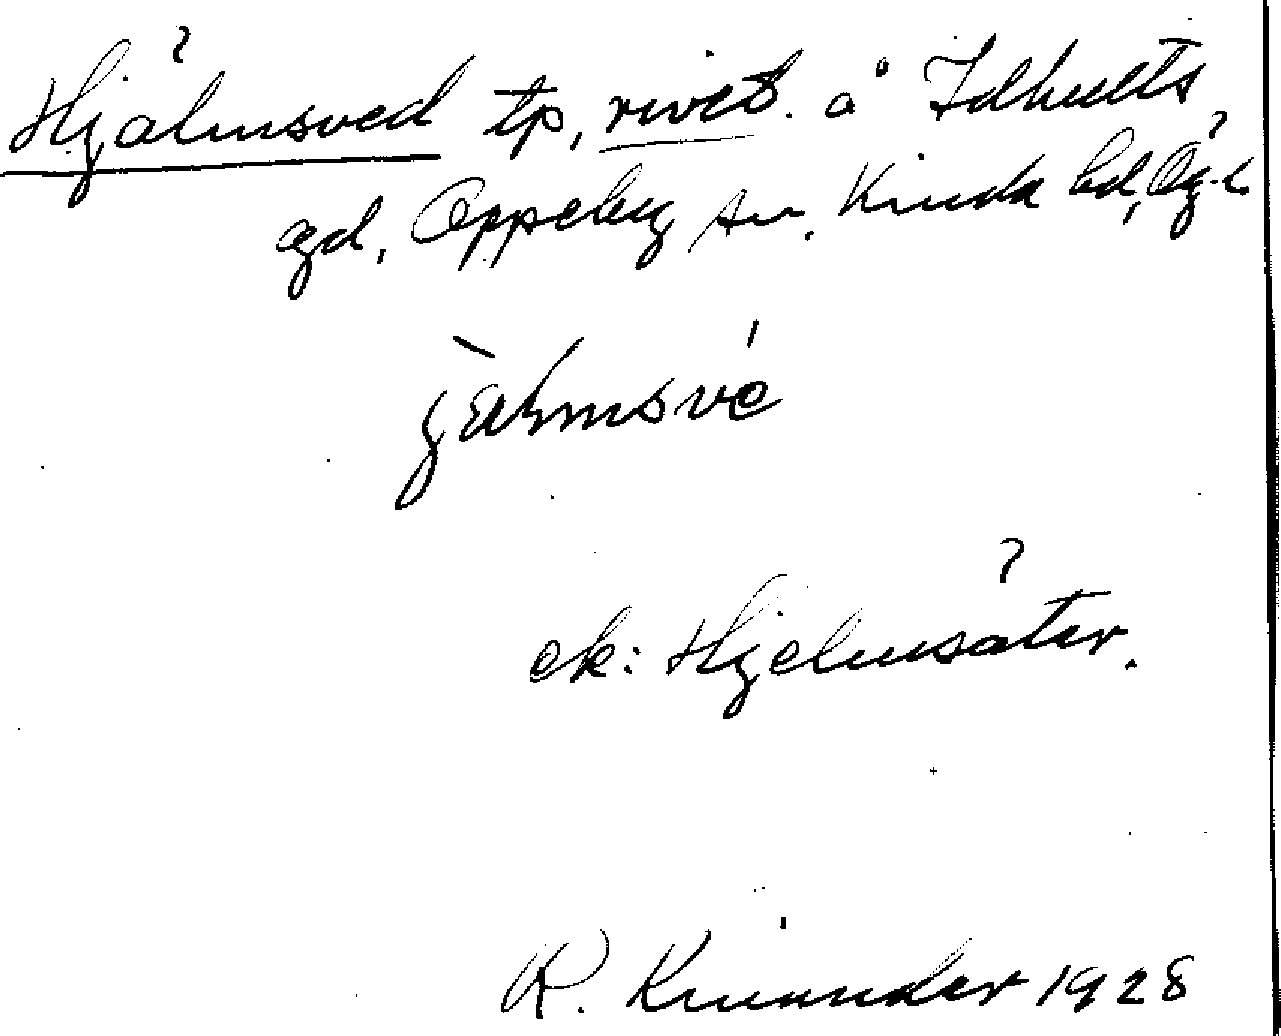 Hjälmsved tp, rivet. å Idhults
gd, Oppeby sn. Kinda hd, Ög-l
jälmsve
ek: Hjelmsäter.
R. Kinander 1928